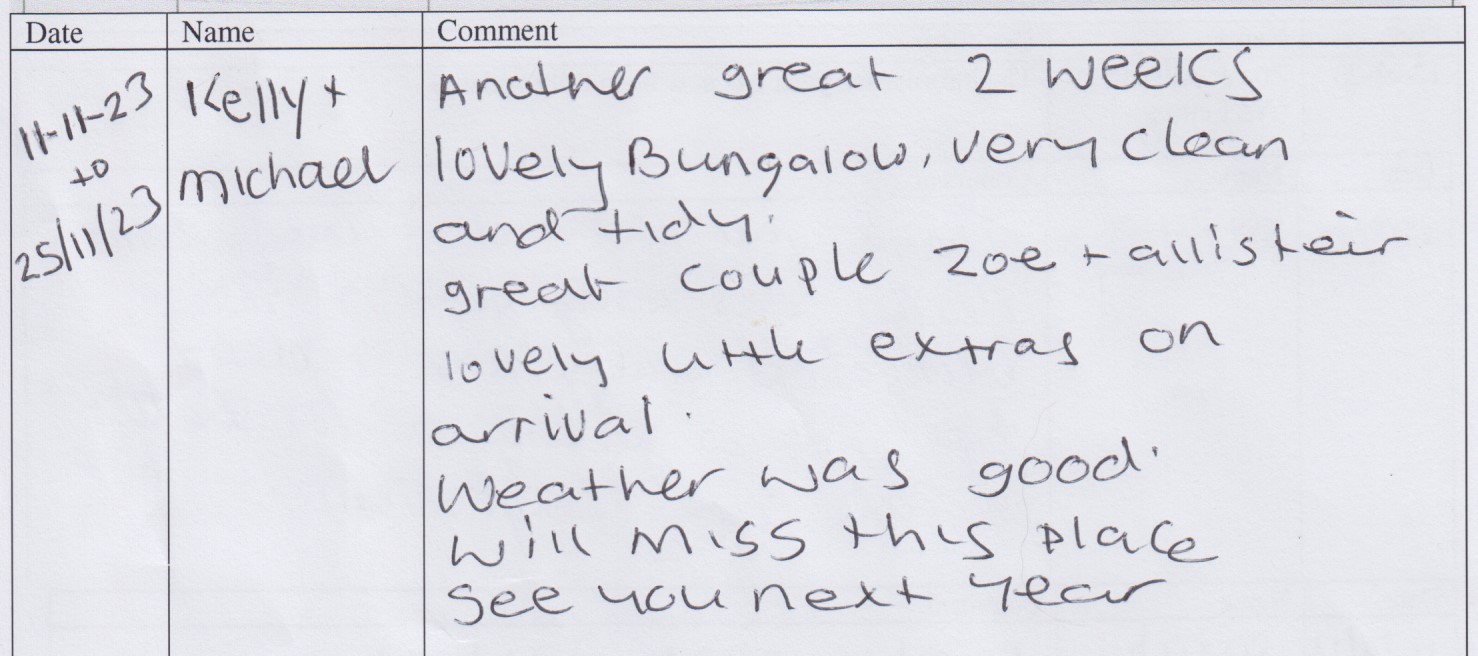 Date Name Comment
11-11-23 to 25/11/23
Kelly + michael
Another great 2 weeks
lovely Bungalow, very clean
and tidy.
great couple zoe + allisteir
lovely little extras on
arrival.
Weather was good.
will miss this place
see you next year